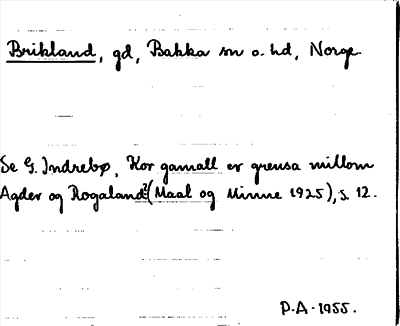 Brikland, gd, Bakka sn o. hd, Norge
Se G. Indrebø, Kor gamall er grensa millom
Agder og Rogaland? (Maal og Minne 1925), s. 12.
P.A. 1955.